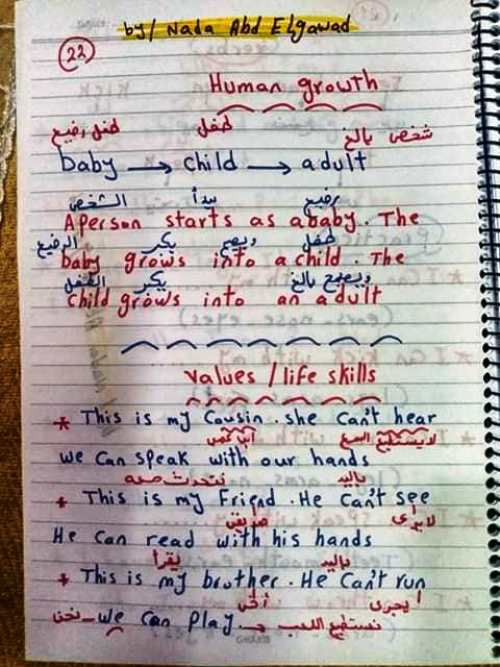 by/ Nada Abd Elgawad
22
Human growth
طفل رضيع طفل شخص بالغ
baby → child → adult
الشخص يبدأ رضيع
A person starts as a baby. The
الرضيع يكبر ويصبح طفل
baby grows into a child. The
الطفل يكبر ويصبح بالغ
child grows into an adult
values / life skills
* This is my Cousin. she can't hear
لا يستطيع السمع
we can speak with our hands
نتحدث باليد
* This is my Friend. He can't see
صديقي لا يرى
He can read with his hands
يقرأ باليد
* This is my brother. He can't run
أخي يجرى
we can play → نستطيع اللعب
نحن